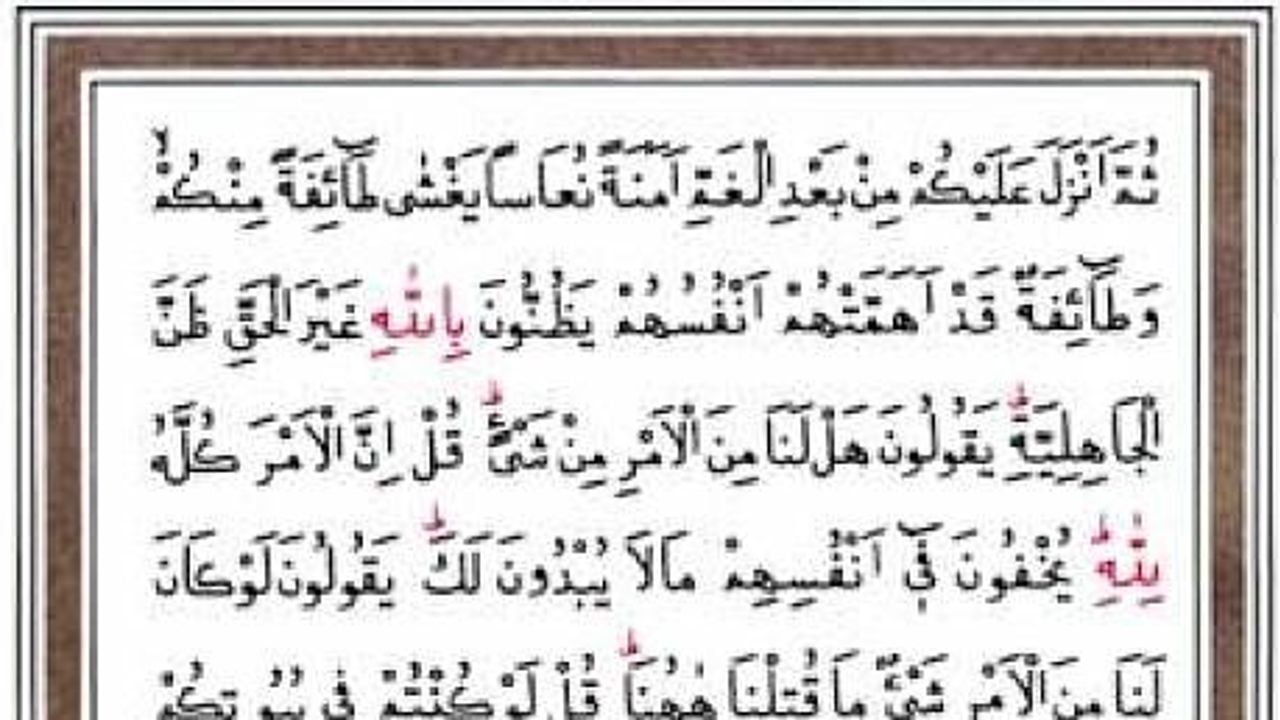 ثُمَّ اَنْزَلَ عَلَيْكُمْ مِنْ بَعْدِ الْغَمِّ اَمَنَةً نُعَاسًا يَغْشٰى طَٓائِفَةً مِنْكُمْۙ
وَطَٓائِفَةٌ قَدْ اَهَمَّتْهُمْ اَنْفُسُهُمْ يَظُنُّونَ بِاللّٰهِ غَيْرَ الْحَقِّ ظَنَّ
الْجَاهِلِيَّةِۜ يَقُولُونَ هَلْ لَنَا مِنَ الْاَمْرِ مِنْ شَيْءٍۜ قُلْ اِنَّ الْاَمْرَ كُلَّهُ
لِلّٰهِۜ يُخْفُونَ فٓي اَنْفُسِهِمْ مَالَا يُبْدُونَ لَكَۜ يَقُولُونَ لَوْ كَانَ
لَنَا مِنَ الْاَمْرِ شَيْءٌ مَا قُتِلْنَا هٰهُنَاۜ قُلْ لَوْ كُنْتُمْ ف۪ي بُيُوتِكُمْ